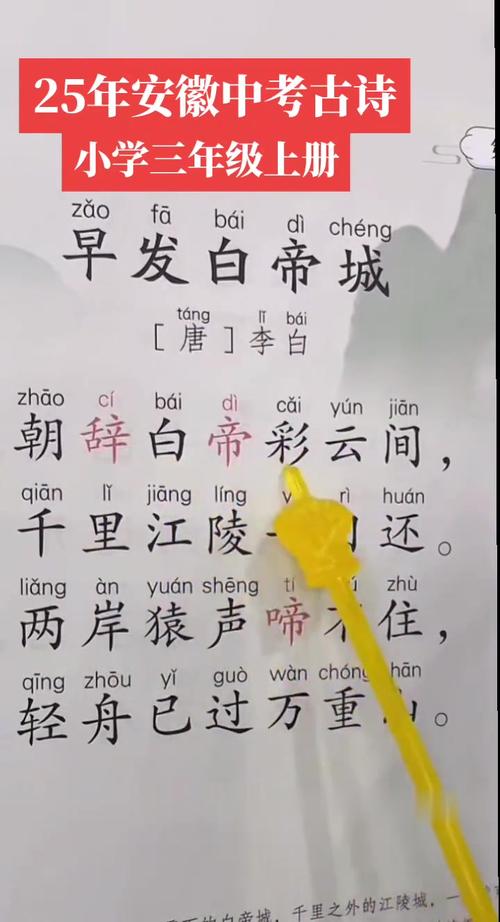 25年安徽中考古诗
小学三年级上册
zǎo fā bái dì chéng
早发白帝城
táng lǐ bái
[唐]李白
zhāo cí bái dì cǎi yún jiān
朝辞白帝彩云间，
qiān lǐ jiāng líng rì huán
千里江陵还。
liǎng àn yuán shēng tí zhù
两岸猿声啼住，
qīng zhōu yǐ guò wàn chóng shān
轻舟已过万重。
的白帝城，千里之外的江陵城，一